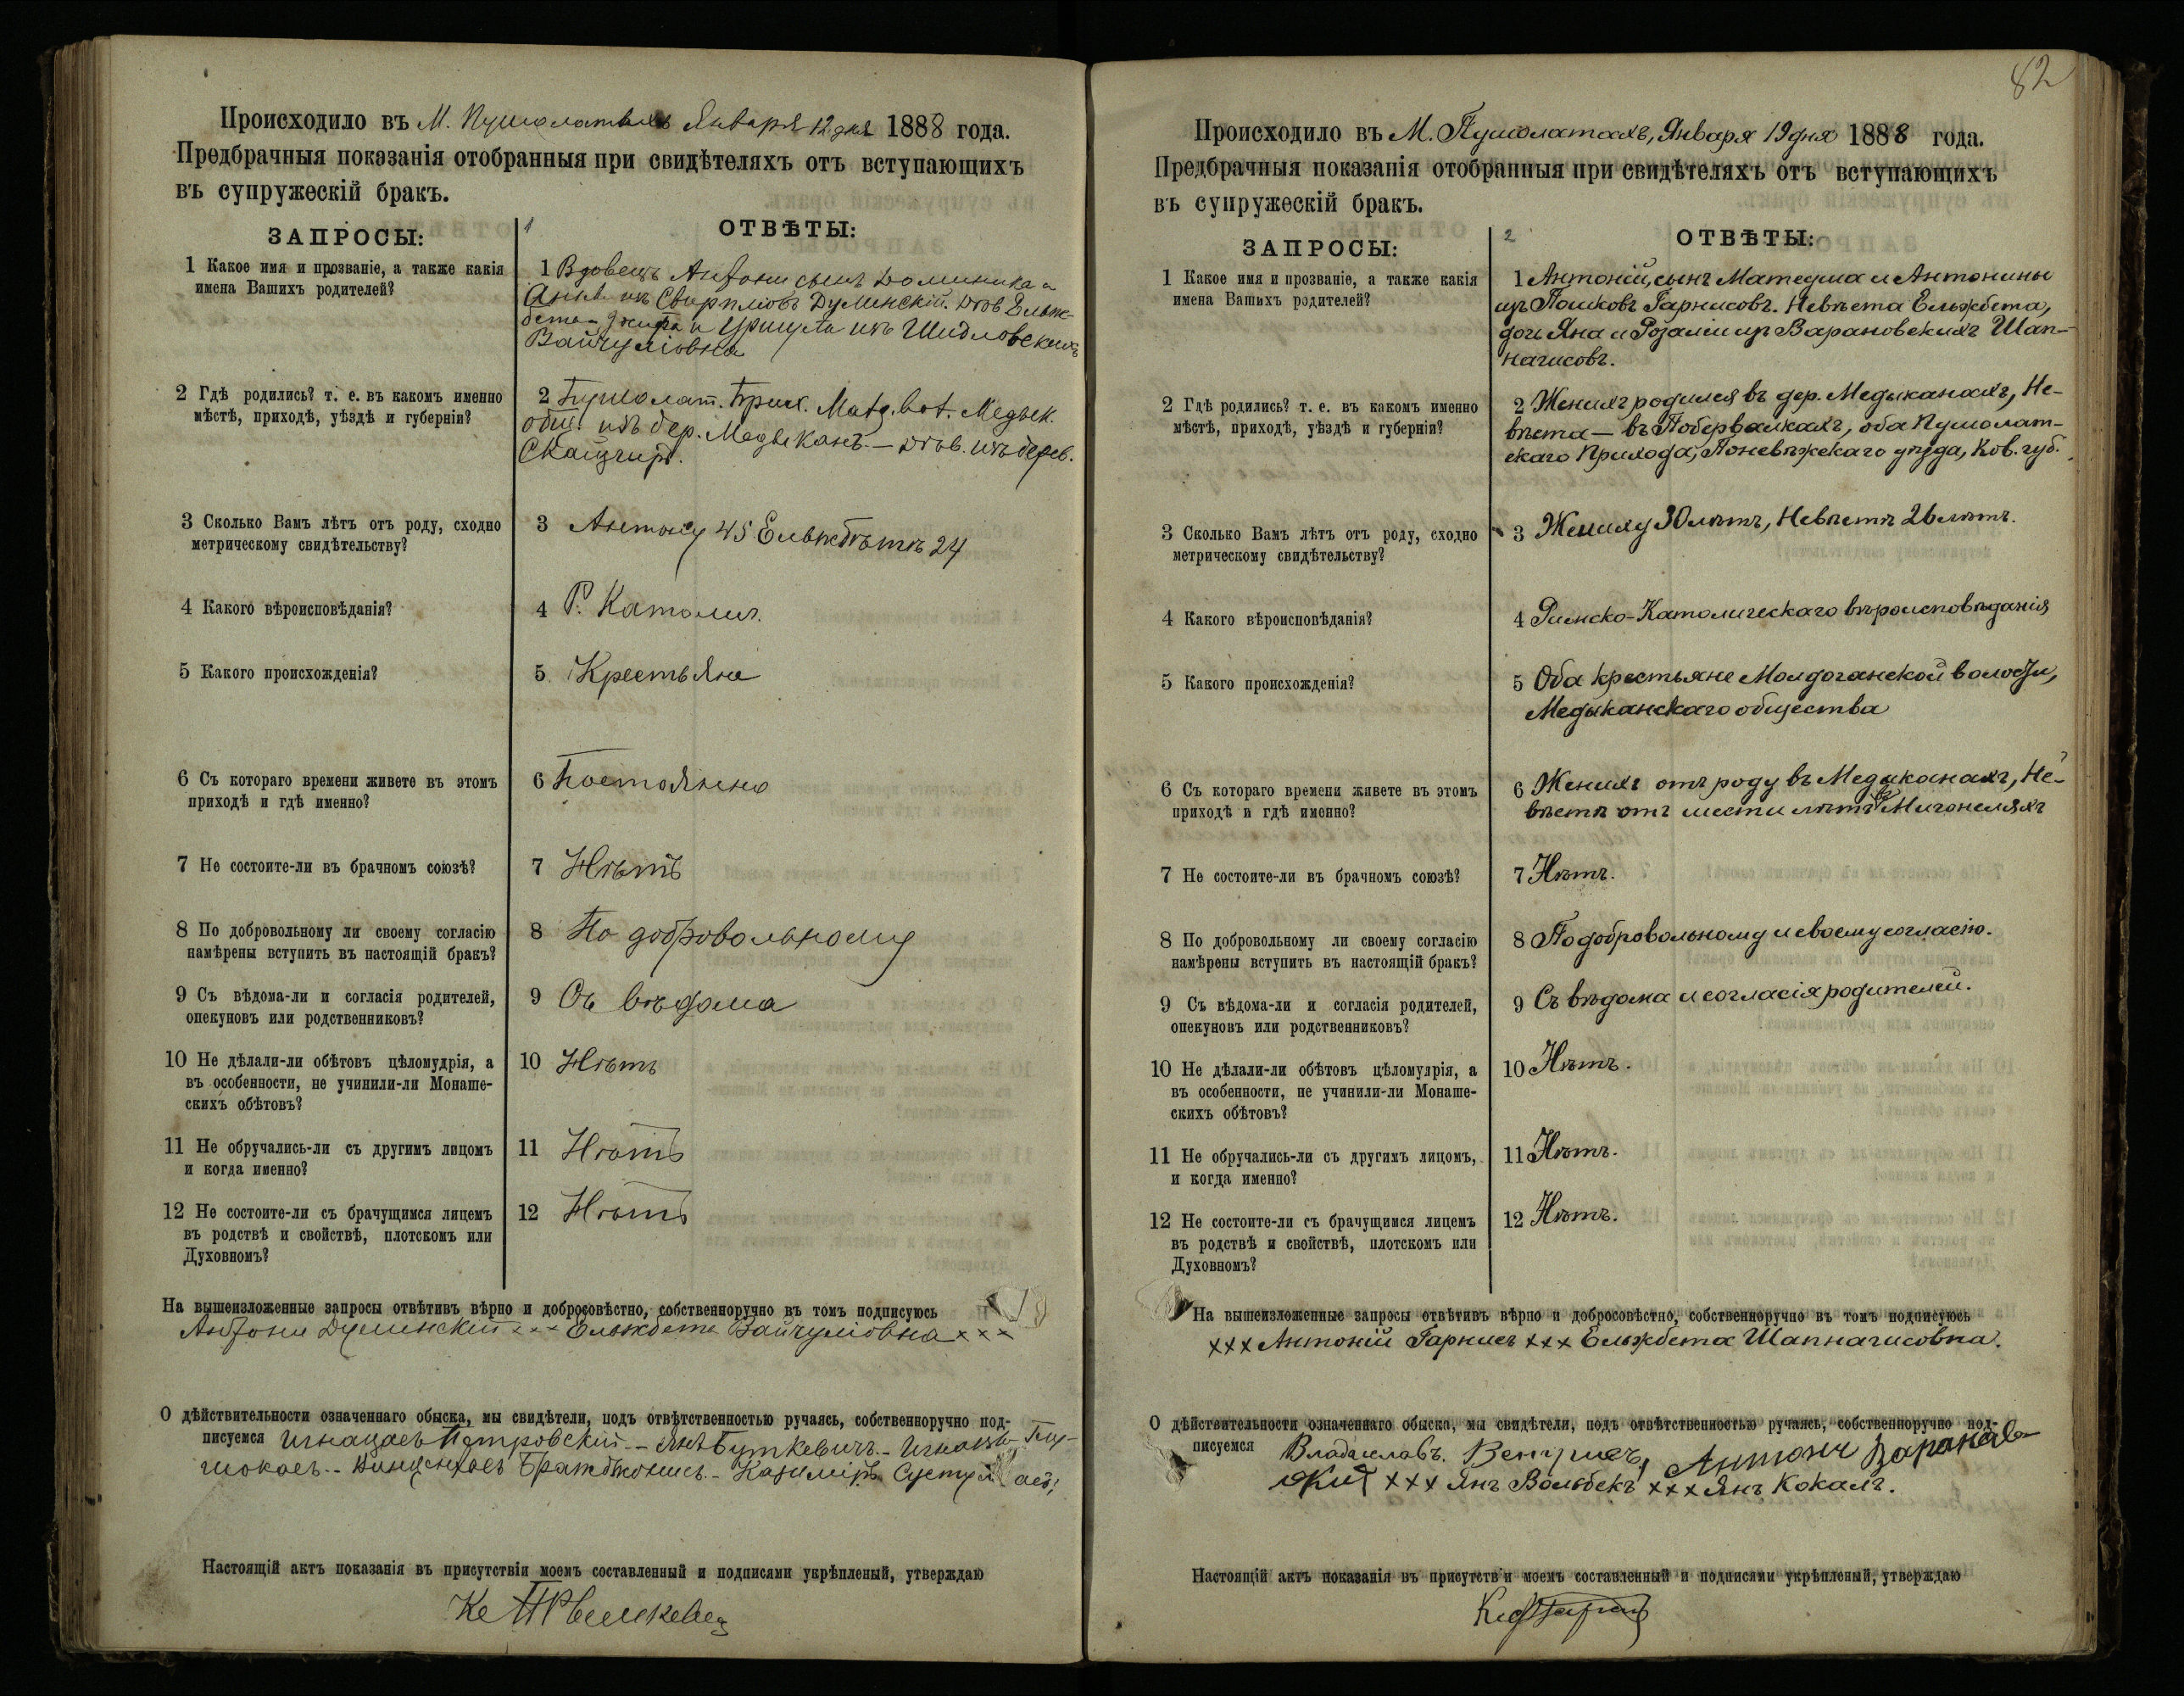 Происходило въ М. Пушолатахъ Января 12 дня 1888 года.
Предбрачныя показанія отобранныя при свидѣтеляхъ отъ вступающихъ
въ супружескій бракъ.
ЗАПРОСЫ:
1 ОТВѢТЫ:
1 Какое имя и прозваніе, а также какія
имена Вашихъ родителей?
1 Вдовецъ Антони сынъ Доминика и
Анны изъ Свирпловъ Думенскій. Дѣв. Ельж-
бета и Уршули изъ Шидловскихъ
Вайчуліовна
2 Гдѣ родились? т. е. въ какомъ именно
мѣстѣ, приходѣ, уѣздѣ и губерніи?
2 Пушолат. Прих. Медык.
общ. изъ дер. Медыканъ. — Дѣв. изъ дерев.
3 Сколько Вамъ лѣтъ отъ роду, сходно
метрическому свидѣтельству?
3 Антону 45 Ельжбѣтѣ 24
4 Какого вѣроисповѣданія?
4 Р. Католич.
5 Какого происхожденія?
5 Крестьяне
6 Съ котораго времени живете въ этомъ
приходѣ и гдѣ именно?
6 Постоянно
7 Не состоите-ли въ брачномъ союзѣ?
7 Нѣтъ
8 По добровольному ли своему согласію
намѣрены вступить въ настоящій бракъ?
8 По добровольному
9 Съ вѣдома-ли и согласія родителей,
опекуновъ или родственниковъ?
9 Съ вѣдома
10 Не дѣлали-ли обѣтовъ цѣломудрія, а
въ особенности, не учинили-ли Монаше-
скихъ обѣтовъ?
10 Нѣтъ
11 Не обручались-ли съ другимъ лицомъ
и когда именно?
11 Нѣтъ
12 Не состоите-ли съ брачущимся лицемъ
въ родствѣ и свойствѣ, плотскомъ или
Духовномъ?
12 Нѣтъ
На вышеизложенные запросы отвѣтивъ вѣрно и добросовѣстно, собственноручно въ томъ подписуюсь
Антони Думенскій ××× Ельжбета Вайчуліовна ×××
О дѣйствительности означеннаго обыска, мы свидѣтели, подъ отвѣтственностью ручаясь, собственноручно под-
писуемся Петровскій — Янъ Буткевичъ —
Казимиръ
Настоящій актъ показанія въ присутствіи моемъ составленный и подписями укрѣпленый, утверждаю
82
Происходило въ М. Пушолатахъ, Января 19 дня 1888 года.
Предбрачныя показанія отобранныя при свидѣтеляхъ отъ вступающихъ
въ супружескій бракъ.
ЗАПРОСЫ:
2 ОТВѢТЫ:
1 Какое имя и прозваніе, а также какія
имена Вашихъ родителей?
1 Антоній, сынъ Матеуша и Антонины
изъ Пошковъ Гарнисовъ. Невѣста Ельжбета,
дочь Яна и Розаліи изъ Барановскихъ Шап-
нагисовъ.
2 Гдѣ родились? т. е. въ какомъ именно
мѣстѣ, приходѣ, уѣздѣ и губерніи?
2 Женихъ родился въ дер. Медыканахъ, Не-
вѣста — въ Побервалкахъ, оба Пушолат-
скаго Прихода, Поневѣжскаго уѣзда, Ков. губ.
3 Сколько Вамъ лѣтъ отъ роду, сходно
метрическому свидѣтельству?
3 Жениху 30 лѣтъ, Невѣстѣ 26 лѣтъ.
4 Какого вѣроисповѣданія?
4 Римско-Католическаго вѣроисповѣданія
5 Какого происхожденія?
5 Оба крестьяне Молдочанской волости,
Медыканскаго общества
6 Съ котораго времени живете въ этомъ
приходѣ и гдѣ именно?
6 Женихъ отъ роду въ Медыканахъ, Не-
вѣста отъ шести лѣтъ въ Мигонеляхъ
7 Не состоите-ли въ брачномъ союзѣ?
7 Нѣтъ.
8 По добровольному ли своему согласію
намѣрены вступить въ настоящій бракъ?
8 По добровольному и своему согласію.
9 Съ вѣдома-ли и согласія родителей,
опекуновъ или родственниковъ?
9 Съ вѣдома и согласія родителей.
10 Не дѣлали-ли обѣтовъ цѣломудрія, а
въ особенности, не учинили-ли Монаше-
скихъ обѣтовъ?
10 Нѣтъ.
11 Не обручались-ли съ другимъ лицомъ,
и когда именно?
11 Нѣтъ.
12 Не состоите-ли съ брачущимся лицемъ
въ родствѣ и свойствѣ, плотскомъ или
Духовномъ?
12 Нѣтъ.
На вышеизложенные запросы отвѣтивъ вѣрно и добросовѣстно, собственноручно въ томъ подписуюсь
××× Антоній Гарнисъ ××× Ельжбета Шапнагисовна.
О дѣйствительности означеннаго обыска, мы свидѣтели, подъ отвѣтственностью ручаясь, собственноручно под-
писуемся Владиславъ Антони Баранов-
скій ××× Янъ Вольбекъ ××× Янъ Кокалъ.
Настоящій актъ показанія въ присутствіи моемъ составленный и подписями укрѣпленый, утверждаю